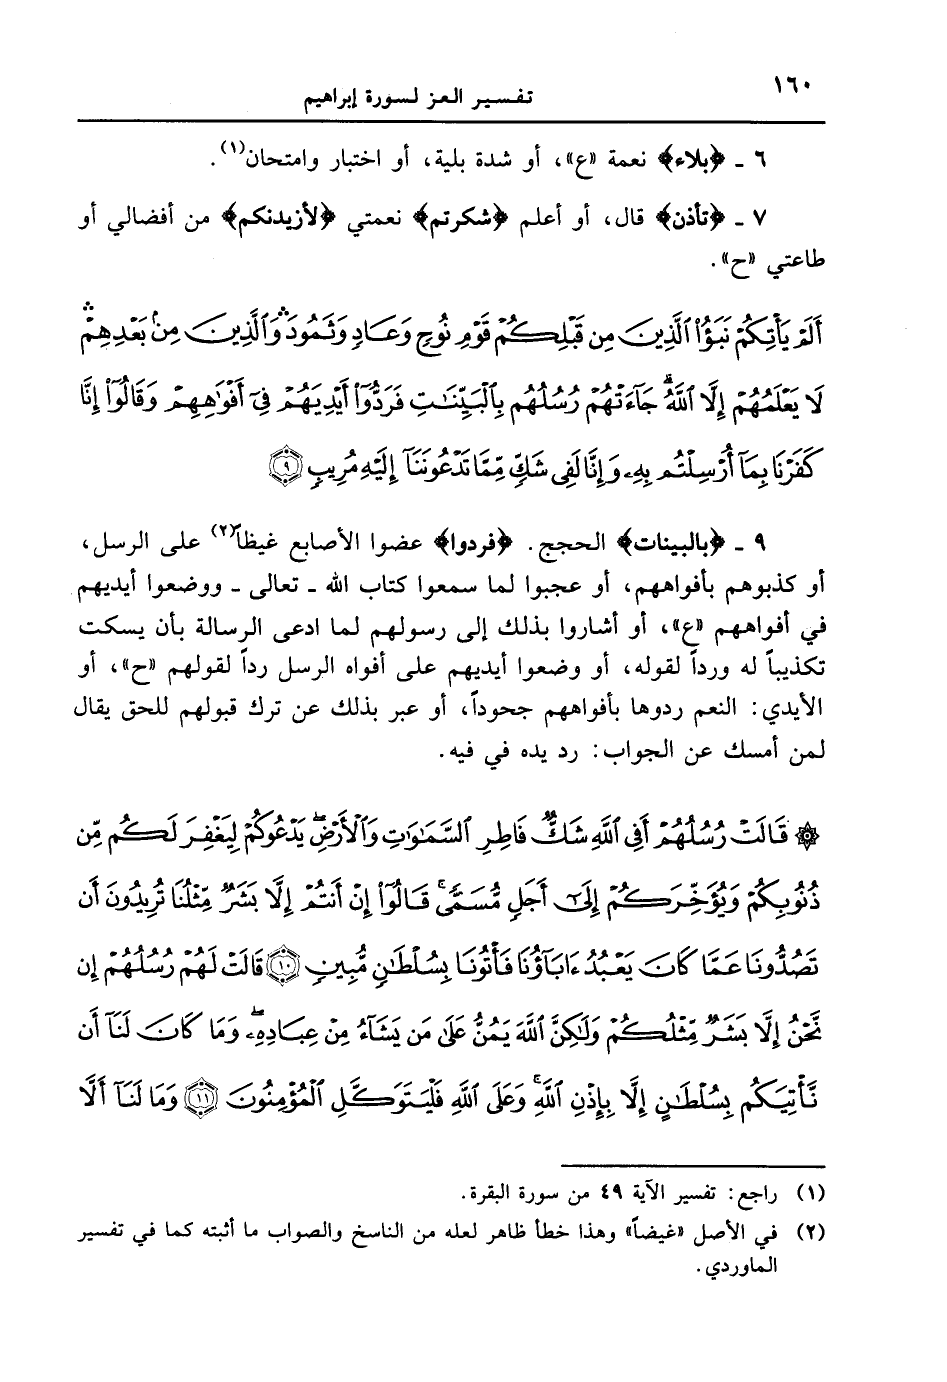 ١٦٠
تفسير العز لسورة إبراهيم
٦ ـ ﴿بلاء﴾ نعمة «ع»، أو شدة بلية، أو اختبار وامتحان(١).
٧ ـ ﴿تأذن﴾ قال، أو أعلم ﴿شكرتم﴾ نعمتي ﴿لأزيدنكم﴾ من أفضالي أو
طاعتي «ح».
أَلَمْ يَأْتِكُمْ نَبَؤُا۟ ٱلَّذِينَ مِن قَبْلِكُمْ قَوْمِ نُوحٍ وَعَادٍ وَثَمُودَ ۛ وَٱلَّذِينَ مِنۢ بَعْدِهِمْ ۛ
لَا يَعْلَمُهُمْ إِلَّا ٱللَّهُ ۚ جَآءَتْهُمْ رُسُلُهُم بِٱلْبَيِّنَٰتِ فَرَدُّوٓا۟ أَيْدِيَهُمْ فِىٓ أَفْوَٰهِهِمْ وَقَالُوٓا۟ إِنَّا
كَفَرْنَا بِمَآ أُرْسِلْتُم بِهِۦ وَإِنَّا لَفِى شَكٍّ مِّمَّا تَدْعُونَنَآ إِلَيْهِ مُرِيبٍ ٩
٩ ـ ﴿بالبينات﴾ الحجج. ﴿فردوا﴾ عضوا الأصابع غيظاً(٢) على الرسل،
أو كذبوهم بأفواههم، أو عجبوا لما سمعوا كتاب الله ـ تعالى ـ ووضعوا أيديهم
في أفواههم «ع»، أو أشاروا بذلك إلى رسولهم لما ادعى الرسالة بأن يسكت
تكذيباً له ورداً لقوله، أو وضعوا أيديهم على أفواه الرسل رداً لقولهم «ح»، أو
الأيدي: النعم ردوها بأفواههم جحوداً، أو عبر بذلك عن ترك قبولهم للحق يقال
لمن أمسك عن الجواب: رد يده في فيه.
۞ قَالَتْ رُسُلُهُمْ أَفِى ٱللَّهِ شَكٌّ فَاطِرِ ٱلسَّمَٰوَٰتِ وَٱلْأَرْضِ ۖ يَدْعُوكُمْ لِيَغْفِرَ لَكُم مِّن
ذُنُوبِكُمْ وَيُؤَخِّرَكُمْ إِلَىٰٓ أَجَلٍ مُّسَمًّى ۚ قَالُوٓا۟ إِنْ أَنتُمْ إِلَّا بَشَرٌ مِّثْلُنَا تُرِيدُونَ أَن
تَصُدُّونَا عَمَّا كَانَ يَعْبُدُ ءَابَآؤُنَا فَأْتُونَا بِسُلْطَٰنٍ مُّبِينٍ ١٠ قَالَتْ لَهُمْ رُسُلُهُمْ إِن
نَّحْنُ إِلَّا بَشَرٌ مِّثْلُكُمْ وَلَٰكِنَّ ٱللَّهَ يَمُنُّ عَلَىٰ مَن يَشَآءُ مِنْ عِبَادِهِۦ ۖ وَمَا كَانَ لَنَآ أَن
نَّأْتِيَكُم بِسُلْطَٰنٍ إِلَّا بِإِذْنِ ٱللَّهِ ۚ وَعَلَى ٱللَّهِ فَلْيَتَوَكَّلِ ٱلْمُؤْمِنُونَ ١١ وَمَا لَنَآ أَلَّا
(١) راجع: تفسير الآية ٤٩ من سورة البقرة.
(٢) في الأصل «غيضاً» وهذا خطأ ظاهر لعله من الناسخ والصواب ما أثبته كما في تفسير
الماوردي.